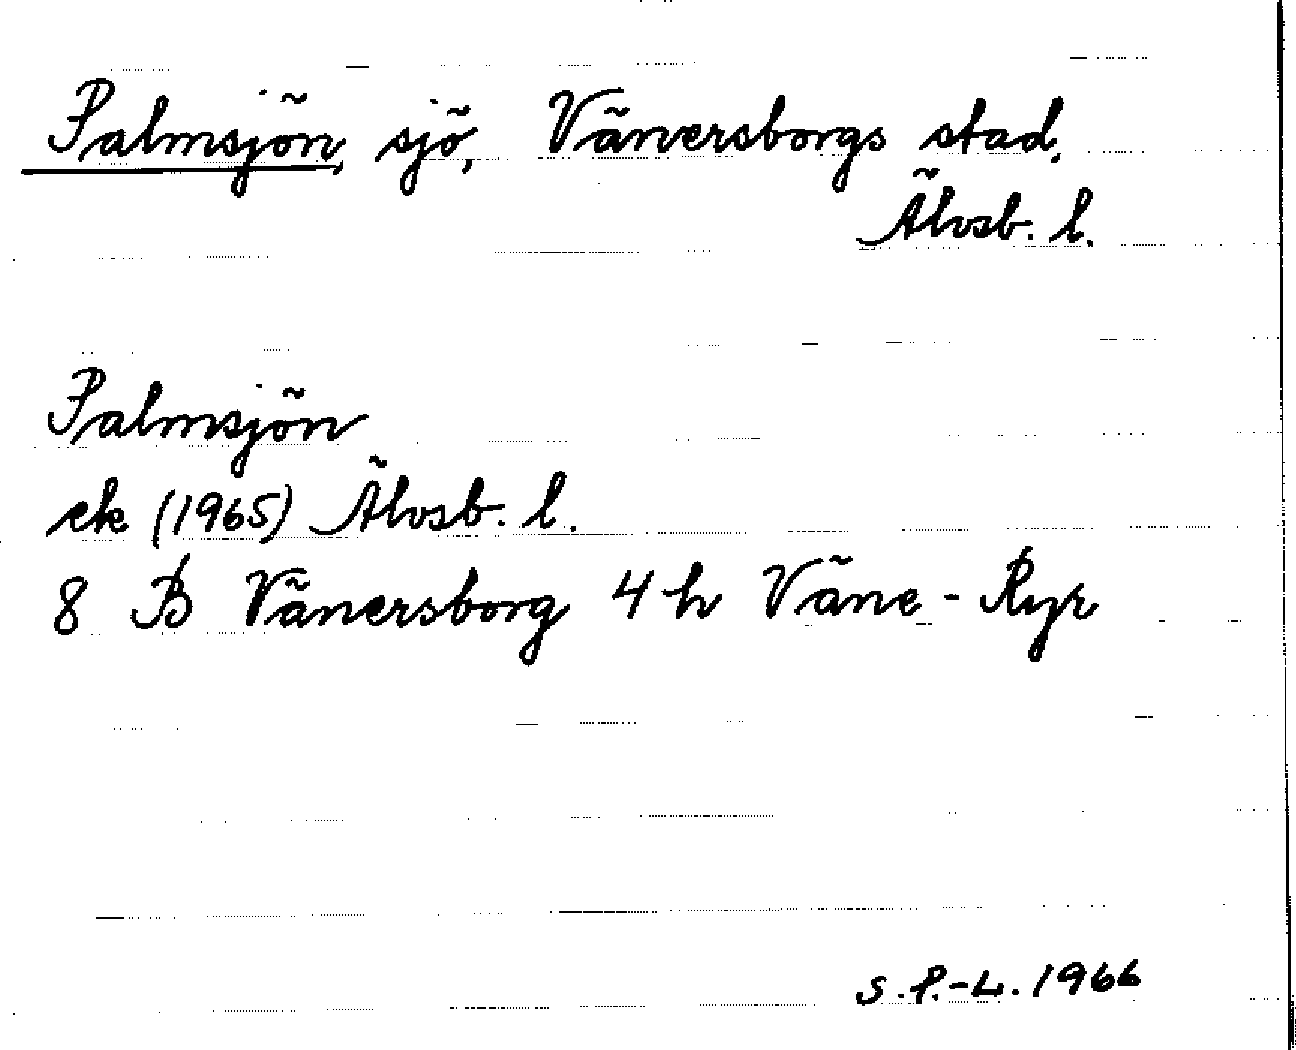 Palmsjön, sjö, Vänersborgs stad,
Älvsb. l.
Palmsjön
ek (1965) Älvsb. l.
8 B Vänersborg 4 h Väne-Ryr
S.P.-L. 1966